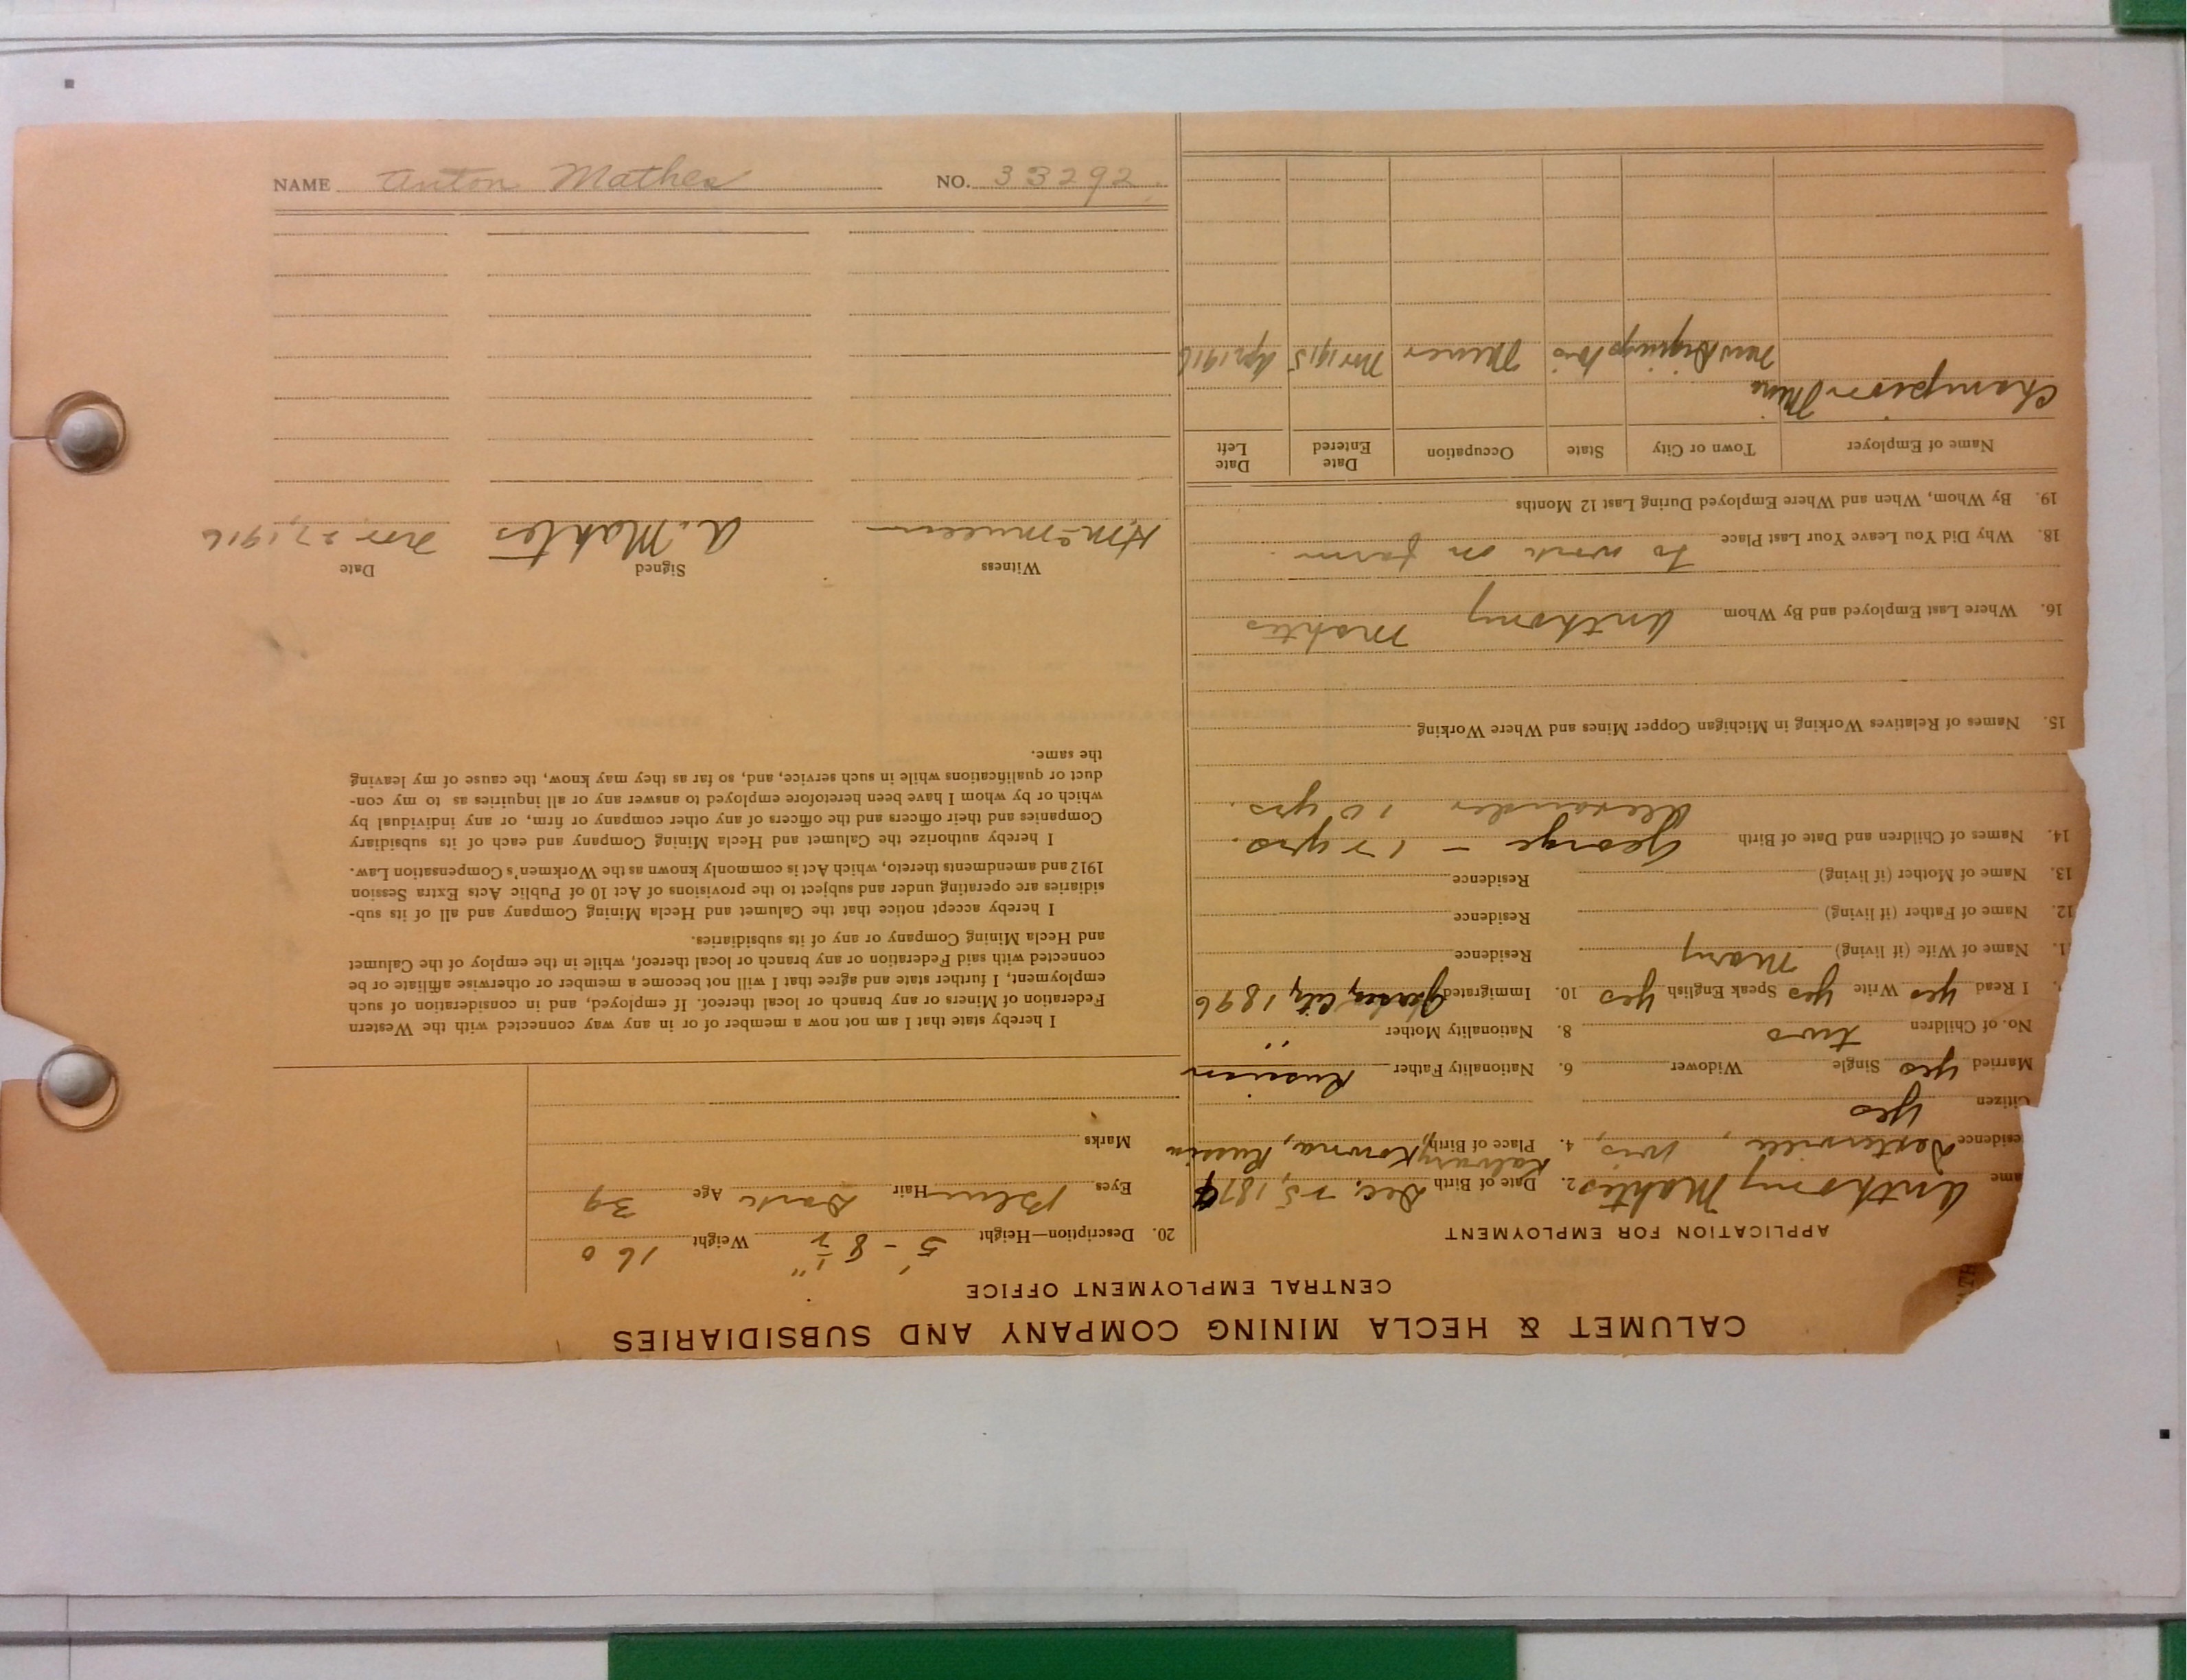 NAME Anton Mathes NO. 33292
CALUMET & HECLA MINING COMPANY AND SUBSIDIARIES
CENTRAL EMPLOYMENT OFFICE
APPLICATION FOR EMPLOYMENT
ame Anthony Mahtes 2. Date of Birth Dec. 25, 1879
esidence Dexterville, Wis, 4. Place of Birth Kalvary Kowna, Russia
Citizen yes
Married yes Single Widower 6. Nationality Father Russian
No. of Children two 8. Nationality Mother "
I Read yes Write yes Speak English yes 10. Immigrated Jersey City 1896
1. Name of Wife (if living) Mary Residence
12. Name of Father (if living) Residence
13. Name of Mother (if living) Residence
14. Names of Children and Date of Birth George - 12 yrs.
Alexander 10 yrs.
15. Names of Relatives Working in Michigan Copper Mines and Where Working
16. Where Last Employed and By Whom Anthony Mahtes
18. Why Did You Leave Your Last Place To work on farm.
19. By Whom, When and Where Employed During Last 12 Months
Name of Employer Town or City State Occupation Date Entered Date Left
Champion Mine New Diggings Wis Miner Nov 1915 Apr 1916
20. Description—Height 5'-8½" Weight 160
Eyes Blue Hair Dark Age 39
Marks
I hereby state that I am not now a member of or in any way connected with the Western
Federation of Miners or any branch or local thereof. If employed, and in consideration of such
employment, I further state and agree that I will not become a member or otherwise affiliate or be
connected with said Federation or any branch or local thereof, while in the employ of the Calumet
and Hecla Mining Company or any of its subsidiaries.
I hereby accept notice that the Calumet and Hecla Mining Company and all of its sub-
sidiaries are operating under and subject to the provisions of Act 10 of Public Acts Extra Session
1912 and amendments thereto, which Act is commonly known as the Workmen's Compensation Law.
I hereby authorize the Calumet and Hecla Mining Company and each of its subsidiary
Companies and their officers and the officers of any other company or firm, or any individual by
which or by whom I have been heretofore employed to answer any or all inquiries as to my con-
duct or qualifications while in such service, and, so far as they may know, the cause of my leaving
the same.
Witness Signed Date
A. Mahtes Nov 27, 1916